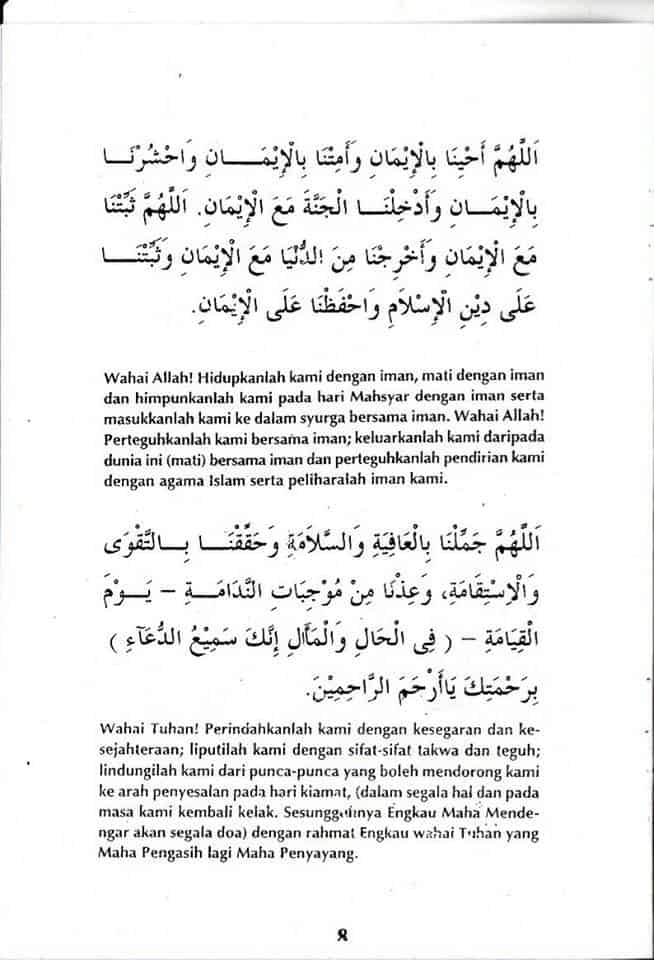 اَللَّهُمَّ أَحْيِنَا بِالْإِيْمَانِ وَأَمِتْنَا بِالْإِيْمَـــانِ وَاحْشُرْنَـــا
بِالْإِيْمَـــانِ وَأَدْخِلْنَـــا الْجَنَّةَ مَعَ الْإِيْمَانِ. اَللَّهُمَّ ثَبِّتْنَا
مَعَ الْإِيْمَانِ وَأَخْرِجْنَا مِنَ الدُّنْيَا مَعَ الْإِيْمَانِ وَثَبِّتْنَـــا
عَلَى دِيْنِ الْإِسْلَامِ وَاحْفَظْنَا عَلَى الْإِيْمَانِ.
Wahai Allah! Hidupkanlah kami dengan iman, mati dengan iman
dan himpunkanlah kami pada hari Mahsyar dengan iman serta
masukkanlah kami ke dalam syurga bersama iman. Wahai Allah!
Perteguhkanlah kami bersama iman; keluarkanlah kami daripada
dunia ini (mati) bersama iman dan perteguhkanlah pendirian kami
dengan agama Islam serta peliharalah iman kami.
اَللَّهُمَّ جَمِّلْنَا بِالْعَافِيَةِ وَالسَّلَامَةِ وَحَقِّقْنَـــا بِـــالتَّقْوَى
وَالْاِسْتِقَامَةِ، وَعِذْنَا مِنْ مُوْجِبَاتِ النَّدَامَـــةِ – يَـــوْمَ
الْقِيَامَةِ – ( فِى الْحَالِ وَالْمَأَالِ إِنَّكَ سَمِيْعُ الدُّعَآءِ )
بِرَحْمَتِكَ يَاأَرْحَمَ الرَّاحِمِيْنَ.
Wahai Tuhan! Perindahkanlah kami dengan kesegaran dan ke-
sejahteraan; liputilah kami dengan sifat-sifat takwa dan teguh;
lindungilah kami dari punca-punca yang boleh mendorong kami
ke arah penyesalan pada hari kiamat, (dalam segala hal dan pada
masa kami kembali kelak. Sesungguhnya Engkau Maha Mende-
ngar akan segala doa) dengan rahmat Engkau wahai Tuhan yang
Maha Pengasih lagi Maha Penyayang.
8